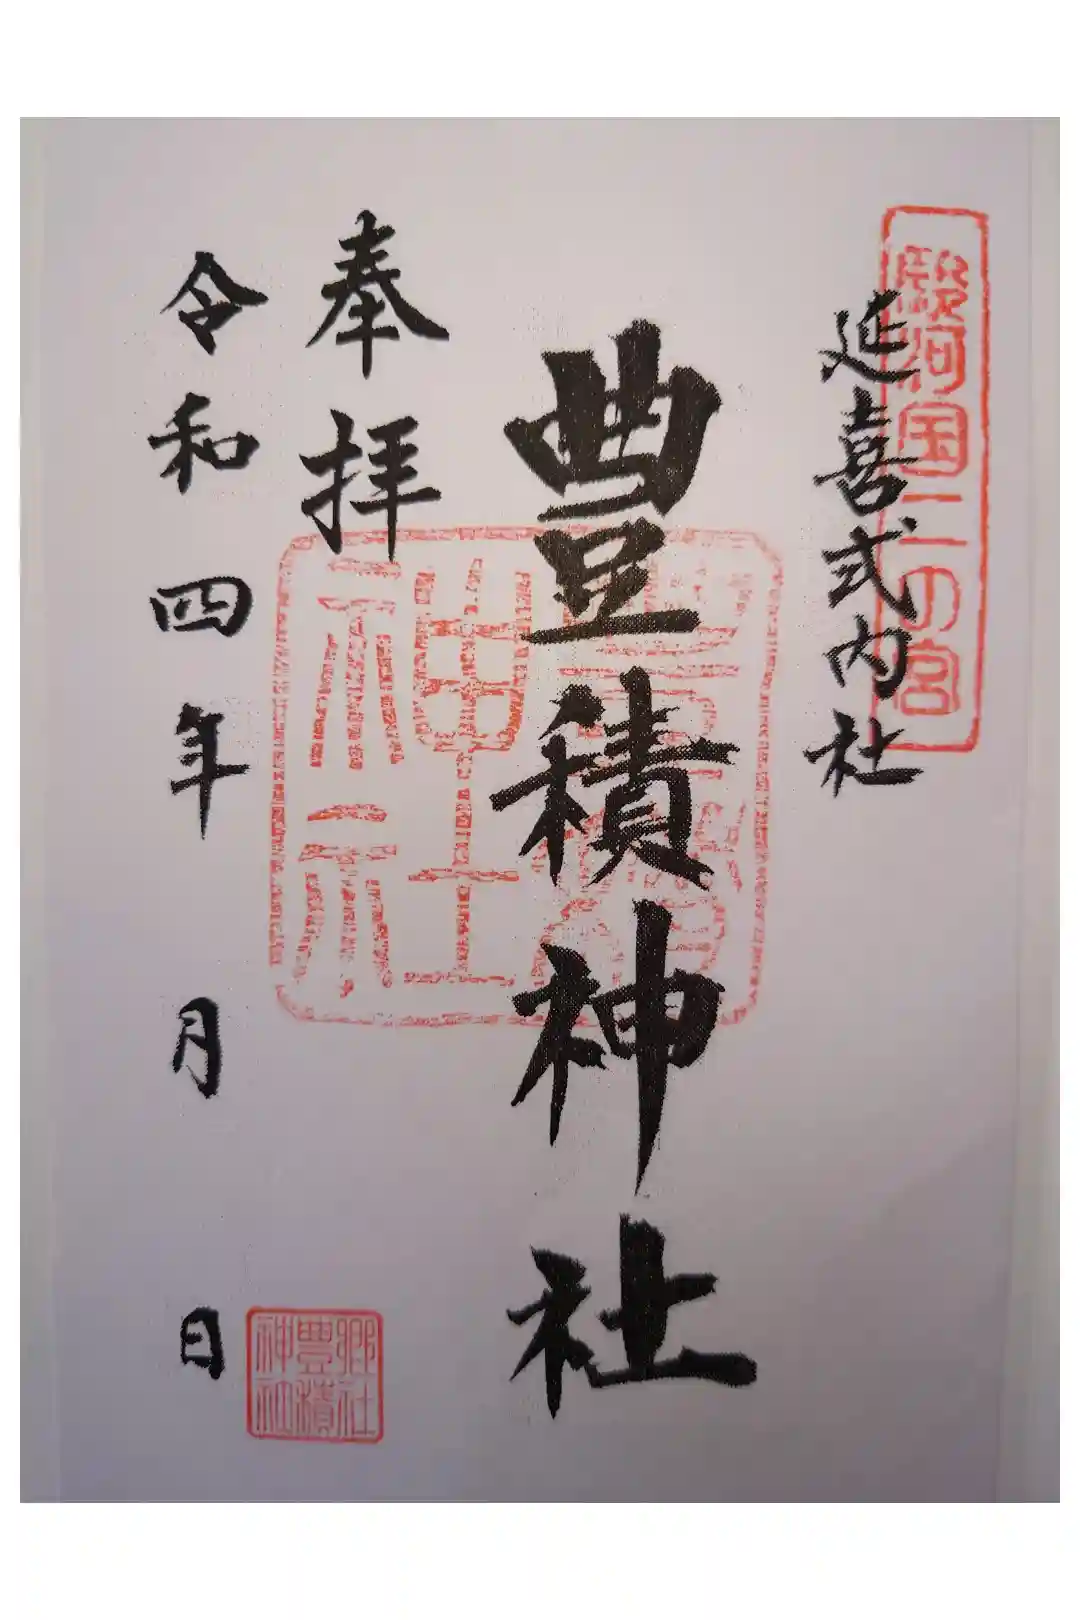 駿河国二の宮
延喜式内社
豊積神社
豊積神社
奉拝
郷社豊積神社
令和四年 月 日